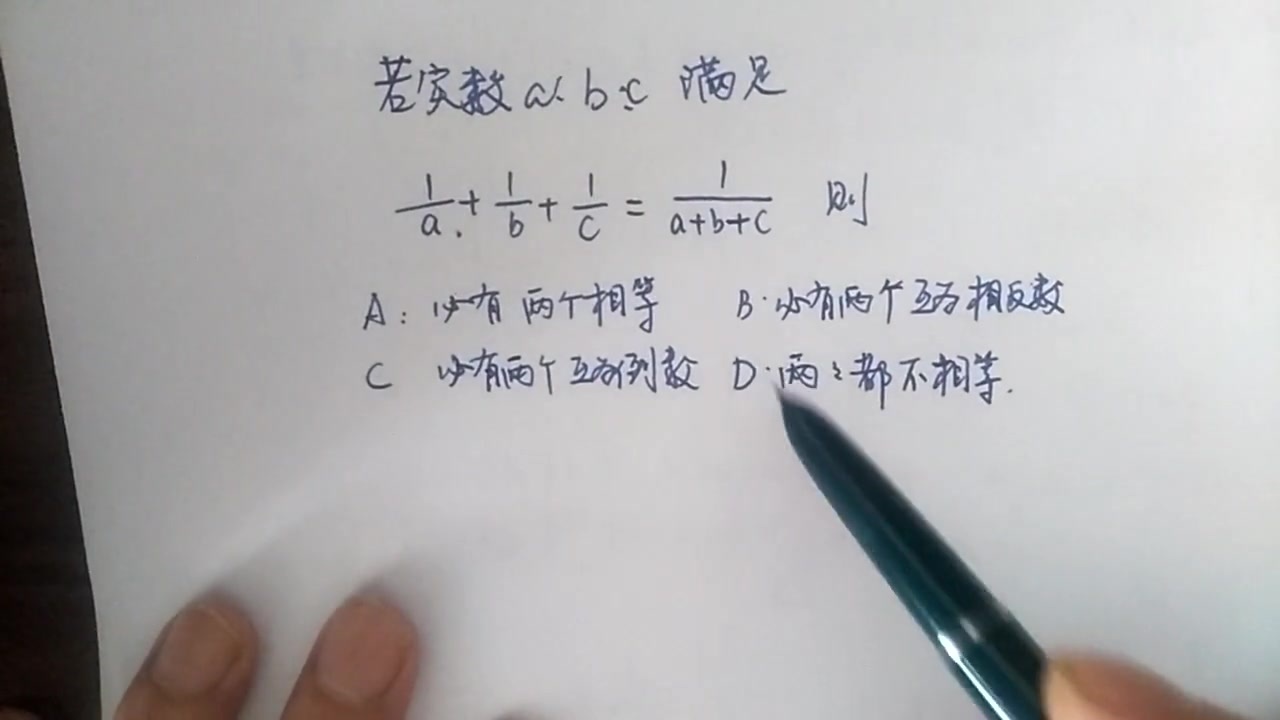 若实数a、b、c 满足
1/a + 1/b + 1/c = 1/(a+b+c) 则
A: 必有两个相等 B. 必有两个互为相反数
C 必有两个互为倒数 D. 两两都不相等.